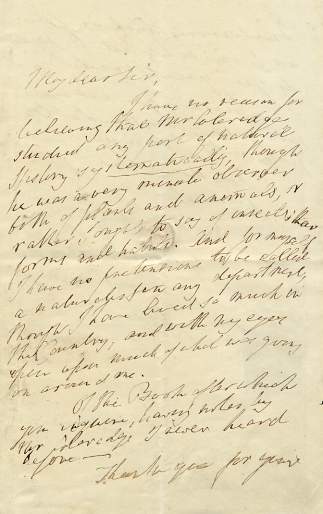 My dear Sir,
I have no reason for
believing that Mr Coleridge
studied any part of natural
History systematically, though
he was a very minute observer
both of plants and animals, or
rather I ought to say of insects than
forms and habits. And for myself
I have no pretensions to be called
a naturalist in any department,
though I have lived so much in
the Country, and with my eyes
open upon much of what was going
on around me.
Of the Book after which
you inquire, having notes by
Mr Coleridge I never heard
before —
Thank you for your